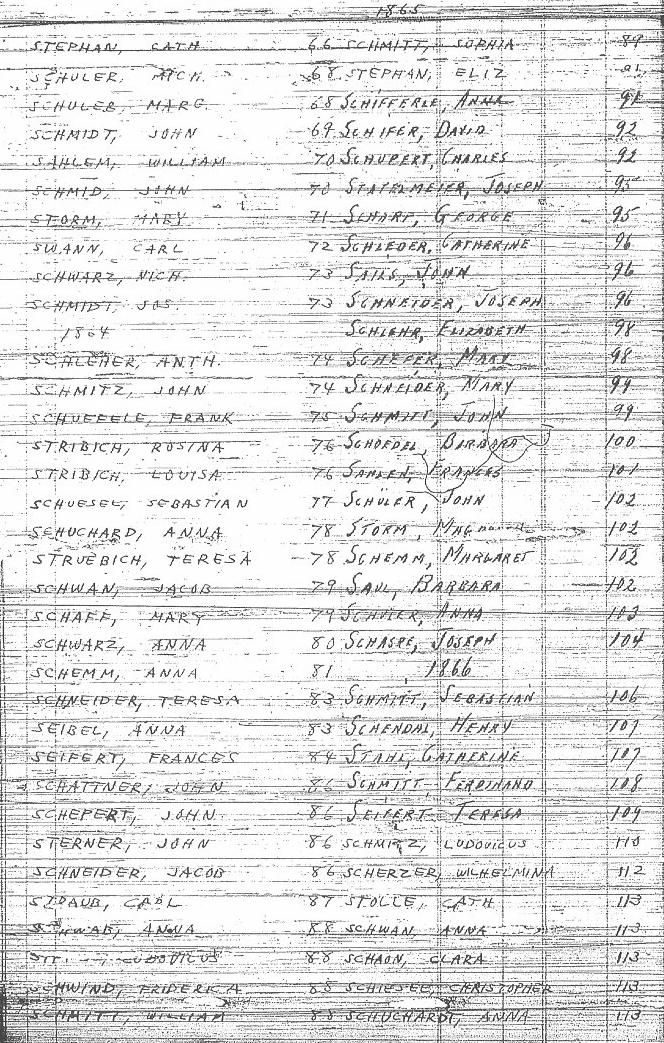 1865
STEPHAN, CATH 66
SCHULER, MICH. 68
SCHULER, MARG 68
SCHMIDT, JOHN 69
SAHLEM, WILLIAM 70
SCHMID, JOHN 70
STORM, MARY 71
SWANN, CARL 72
SCHWARZ, NICH. 73
SCHMIDT, JOS. 73
1864
SCHLEHER, ANTH. 74
SCHMITZ, JOHN 74
SCHUEFELE, FRANK 75
STRIBICH, ROSINA 76
STRIBICH, LOUISA 76
SCHUESEL, SEBASTIAN 77
SCHUCHARD, ANNA 78
STRUEBICH, TERESA 78
SCHWAN, JACOB 79
SCHAFF, MARY 79
SCHWARZ, ANNA 80
SCHEMM, ANNA 81
SCHNEIDER, TERESA 83
SEIBEL, ANNA 83
SEIFERT, FRANCES 84
SCHATTNER, JOHN 86
SCHEPERT, JOHN 86
STERNER, JOHN 86
SCHNEIDER, JACOB 86
STRAUB, CARL 87
SCHWAB, ANNA 88
LUDOVICUS 88
SCHWIND, FRIDERICA 88
SCHMITT, WILLIAM 88
SCHMITT, SOPHIA 89
STEPHAN, ELIZ
SCHIFFERLE, ANNA 91
SCHIFER, DAVID 92
SCHUPERT, CHARLES 92
STATELMEIER, JOSEPH 95
SCHARF, GEORGE 95
SCHLEDER, CATHERINE 96
SAILS, JOHN 96
SCHNEIDER, JOSEPH 96
SCHLEHR, ELIZABETH 98
SCHEFER, MARY 98
SCHNEIDER, MARY 99
SCHMITT, JOHN 99
SCHOEDEL, BARBARA 100
SAHLEN, FRANCES 101
SCHULER, JOHN 102
STORM, 102
SCHEMM, MARGARET 102
SAUL, BARBARA 102
SCHULER, ANNA 103
SCHASRE, JOSEPH 104
1866
SCHMITT, SEBASTIAN 106
SCHENDAL, HENRY 107
STAHL, CATHERINE 107
SCHMITT, FERDINAND 108
SEIFERT, TERESA 109
SCHMITZ, LUDOVICUS 110
SCHERZER, WILHELMINA 112
STOLLE, CATH 113
SCHWAN, ANNA 113
SCHAON, CLARA 113
SCHIESEL, CHRISTOPHER 113
SCHUCHARDT, ANNA 113